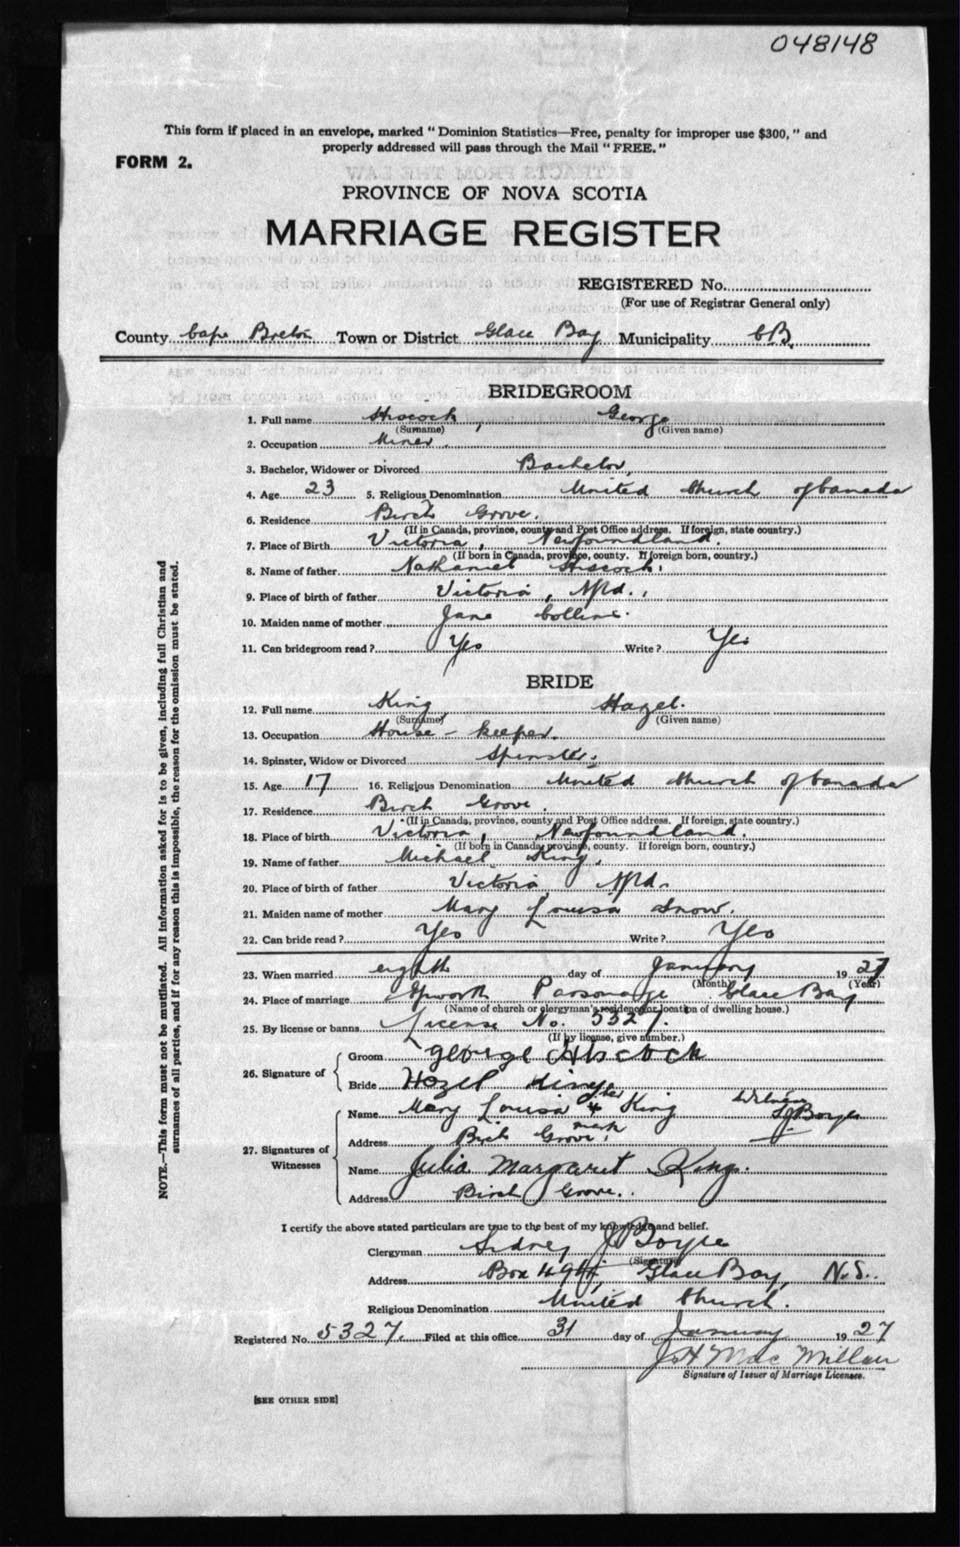 048148
This form if placed in an envelope, marked "Dominion Statistics—Free, penalty for improper use $300," and
properly addressed will pass through the Mail "FREE."
FORM 2.
PROVINCE OF NOVA SCOTIA
MARRIAGE REGISTER
REGISTERED No.
(For use of Registrar General only)
County Cape Breton Town or District Glace Bay Municipality CB.
BRIDEGROOM
1. Full name Hiscock, George
(Surname) (Given name)
2. Occupation Miner.
3. Bachelor, Widower or Divorced Bachelor,
4. Age 23 5. Religious Denomination United Church of Canada
6. Residence Birch Grove.
(If in Canada, province, county and Post Office address. If foreign, state country.)
7. Place of Birth Victoria, Newfoundland.
(If born in Canada, province, county. If foreign born, country.)
8. Name of father Nathaniel Hiscock.
9. Place of birth of father Victoria, Nfld.,
10. Maiden name of mother Jane Collins.
11. Can bridegroom read? Yes Write? Yes
BRIDE
12. Full name King Hazel.
(Surname) (Given name)
13. Occupation House-keeper.
14. Spinster, Widow or Divorced Spinster.
15. Age 17 16. Religious Denomination United Church of Canada
17. Residence Birch Grove.
(If in Canada, province, county and Post Office address. If foreign, state country.)
18. Place of birth Victoria, Newfoundland.
(If born in Canada, province, county. If foreign born, country.)
19. Name of father Michael King.
20. Place of birth of father Victoria, Nfld.
21. Maiden name of mother Mary Louisa Snow.
22. Can bride read? Yes Write? Yes
23. When married eighth day of January 1927
(Month) (Year)
24. Place of marriage Epworth Parsonage Glace Bay
(Name of church or clergyman's residence or location of dwelling house.)
25. By license or banns License No. 5327.
(If by license, give number.)
26. Signature of
Groom George Hiscock
Bride Hazel King
27. Signatures of Witnesses
Name Mary Louisa her x mark King Witness SJBoyle
Address Birch Grove,
Name Julia Margaret King.
Address Birch Grove.
I certify the above stated particulars are true to the best of my knowledge and belief.
Clergyman Sidney J Boyle
(Signature)
Address Box Glace Bay, N.S.
Religious Denomination United Church.
Registered No. 5327. Filed at this office 31 day of January 1927
J H MacMillan
Signature of Issuer of Marriage Licenses.
[SEE OTHER SIDE]
NOTE.—This form must not be mutilated. All information asked for is to be given, including full Christian and
surnames of all parties, and if for any reason this is impossible, the reason for the omission must be stated.